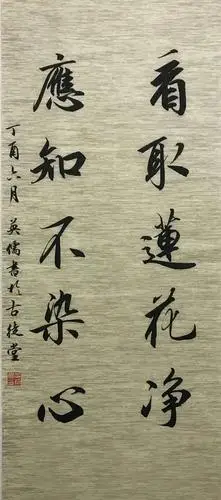 看取蓮花净
應知不染心
丁酉六月 英儒書於古徒堂